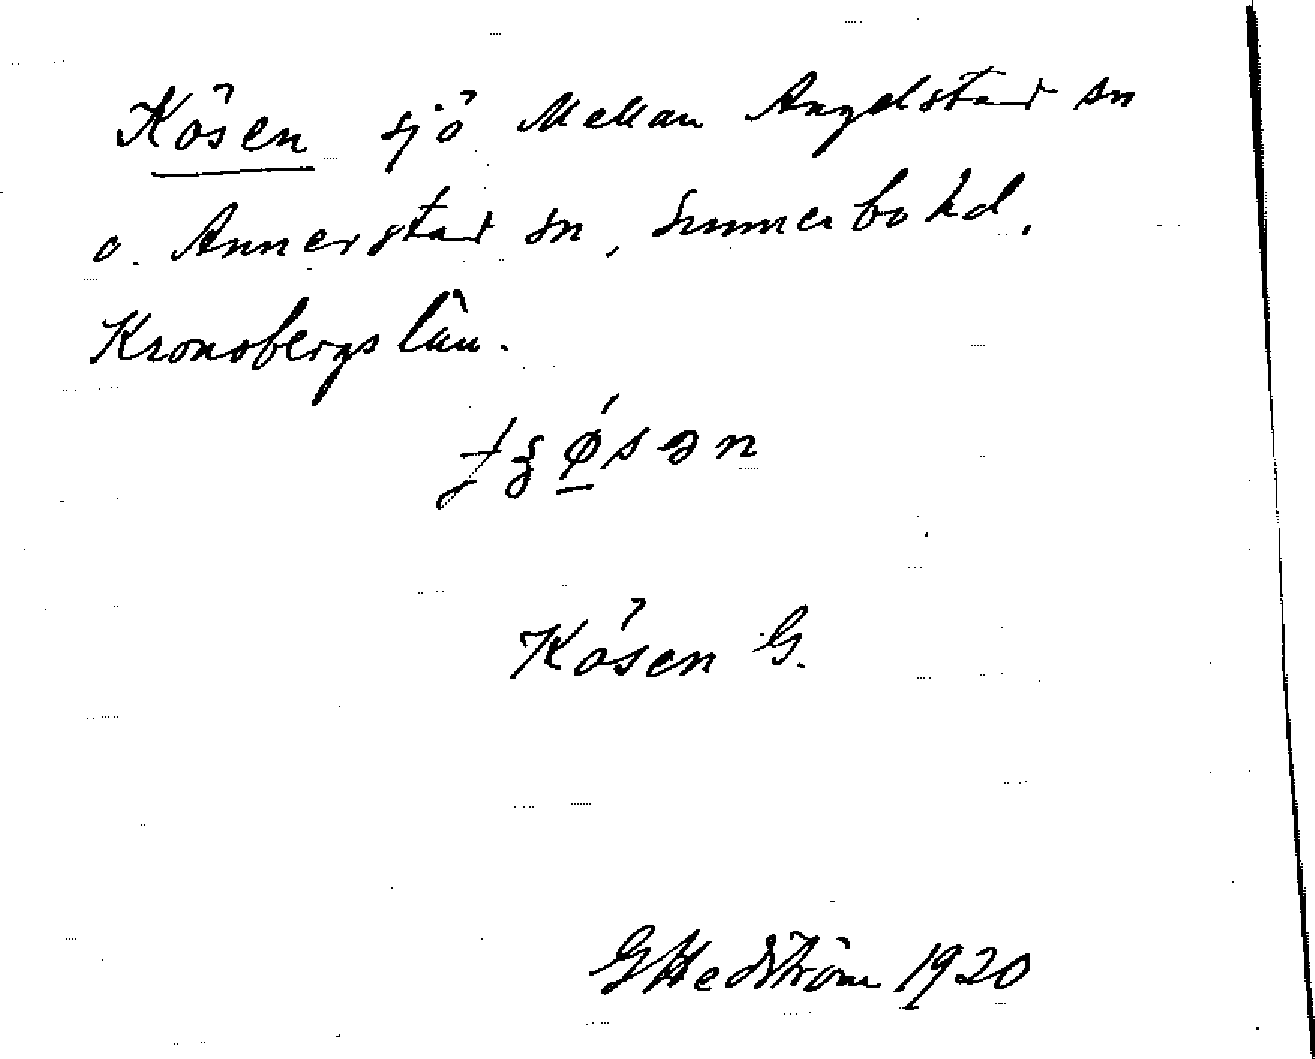 Kösen sjö Mellan Angelstad sn
o. Annerstad sn, Sunnerbo hd,
Kronobergs län.
Kösen G.
G Hedström 1920